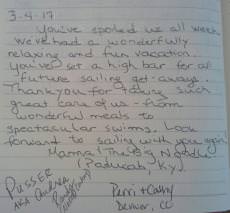 3-4-17
You've spoiled us all week
We've had a wonderfully
relaxing and fun vacation.
You've set a high bar for all
future sailing get-aways.
Thank you for taking such
great care of us - from
wonderful meals to
spectacular swims. Look
forward to sailing with you again
Mamma
(Paducah, Ky)
PUSSER
AKA Andrea
Perri + Casey
Denver, CO